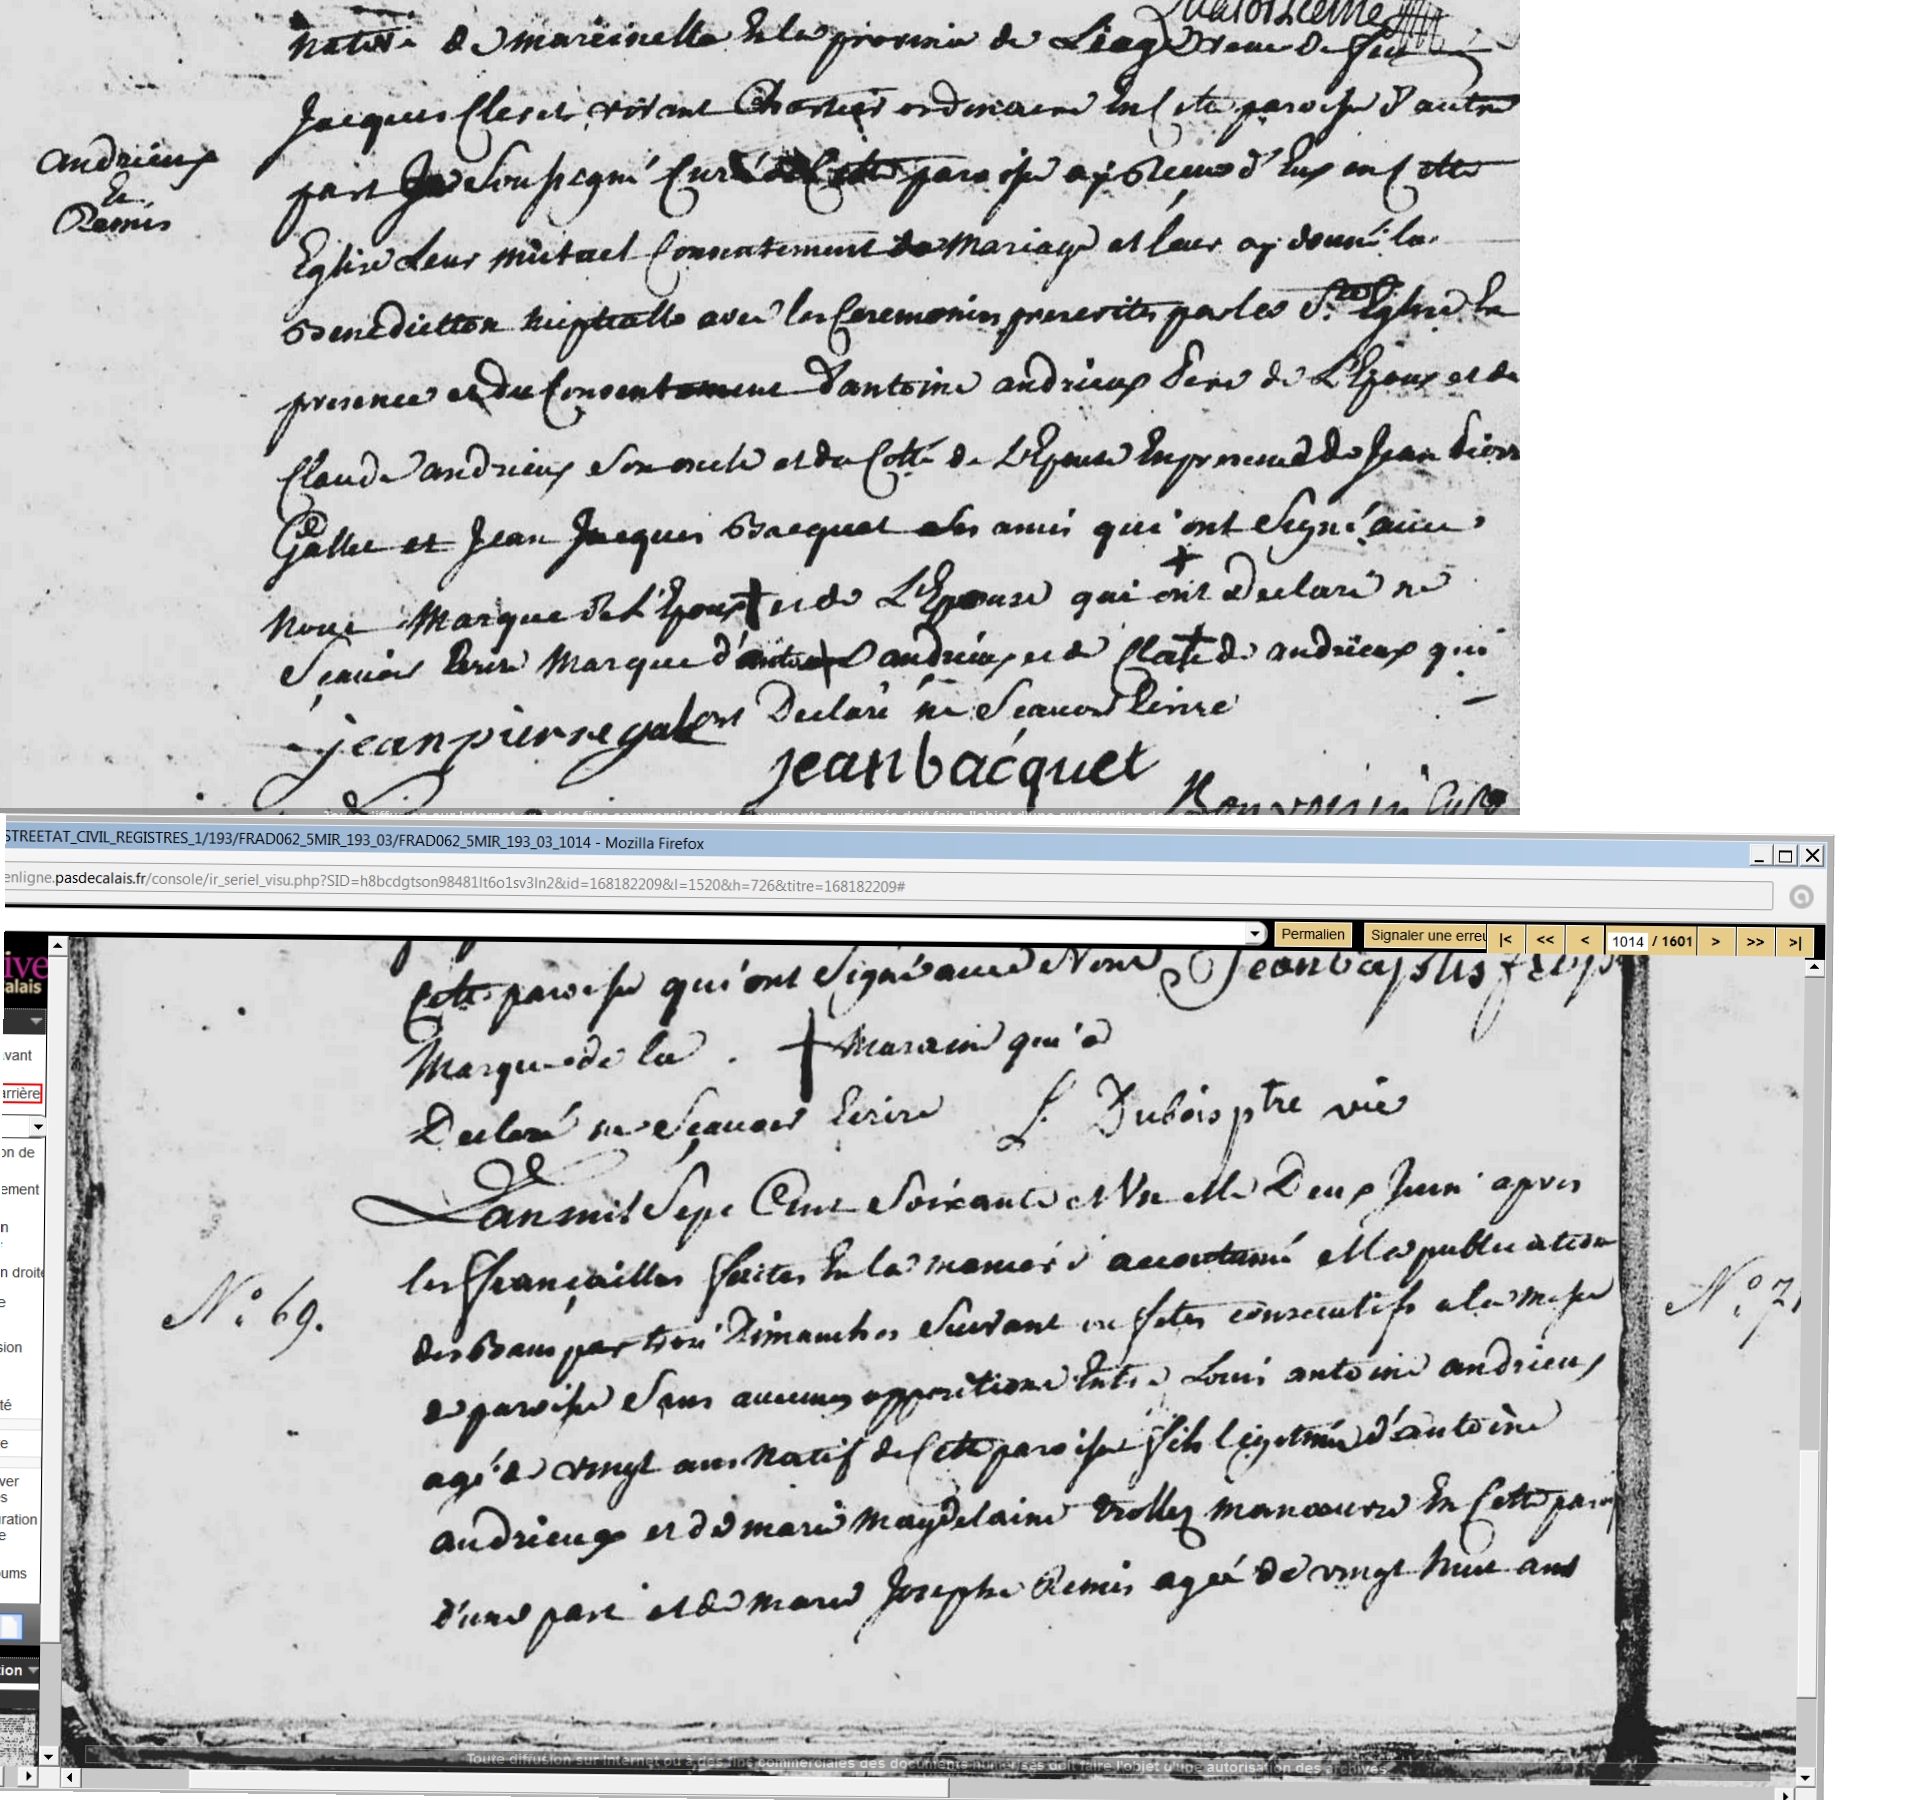 quatorzieme
native de marcinelle En la province de Lieg veuve de feu
Jacques Cleret vivant Chartier ordinaire En Cette paroisse d'autre
part Je Soussigné Curé de Cette paroisse ay Receu d'Eux en Cette
Eglise Leur mutuel Consentement de Mariage et leur ay donné la
Benediction Nuptialle avec les Ceremonies prescrites par les Ste Eglise En
presence et du Consentement D'antoine andrieux Pere de L'Epoux et de
Claude andrieux Son oncle et du Cotté de L'Epouse En presence de Jean Pierre
Gallet et Jean Jacques Bacquet Ses amis qui ont Signé avec
Nous Marque de L'Epoux et de L'Epouse qui ont Declaré ne
Scavoir Ecrire Marque d'antoine andrieux et de Claude andrieux qui
ont Declaré ne Scavoir Ecrire
andrieux
Et
Remis
jean pierre galet
jean bacquet
STREETAT_CIVIL_REGISTRES_1/193/FRAD062_5MIR_193_03/FRAD062_5MIR_193_03_1014 - Mozilla Firefox
enligne.pasdecalais.fr/console/ir_seriel_visu.php?SID=h8bcdgtson98481lt6o1sv3ln2&id=168182209&l=1520&h=726&titre=168182209#
Permalien Signaler une erreu |< << < 1014 / 1601 > >> >|
ive
alais
vant
arrière
on de
ement
n
n droite
e
sion
té
e
ver
s
uration
e
ums
tion
Cette paroisse qui ont Signé avec Nous Jean baptiste
Marque de la Maraine qui a
Declaré ne Scavoir Ecrire L. Dubois ptre vic
L'an mil Sept Cent Soixante et Un et le Deux Juin apres
les ffiançailles ffaites En la maniere accoutumé et la publication
des Bans par trois Dimanches Suivant ou fetes consecutifs a la Messe
de paroisse Sans aucunes oppositions Entre Louis antoine andrieux
agé de vingt ans Natif de Cette paroisse fils legitime d'antoine
andrieux et de marie Magdelaine trollez manoeuvre En Cette paroi
d'une part et de marie Josephe Remis agée de vingt huit ans
N.° 69.
N.° 71
Toute diffusion sur Internet ou à des fins commerciales des documents numérisés doit faire l'objet d'une autorisation des archives